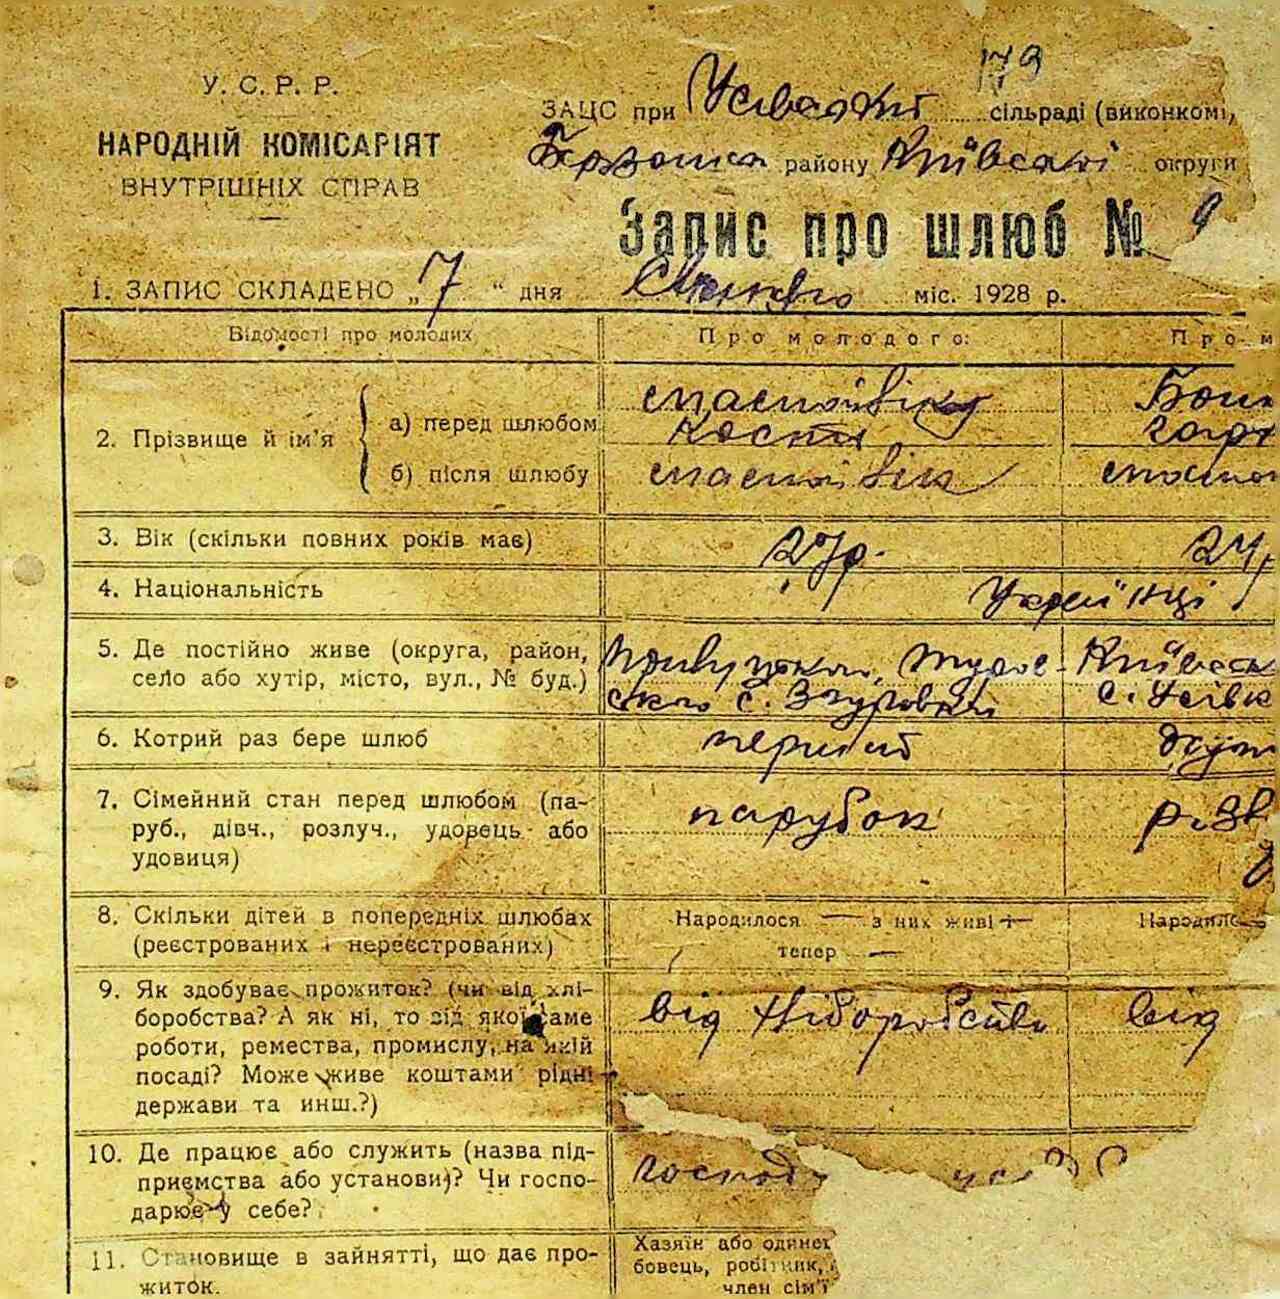 179
У. С. Р. Р.
НАРОДНІЙ КОМІСАРІЯТ
ВНУТРІШНІХ СПРАВ
ЗАЦС при Усівській сільраді (виконкомі,
району Київської округи
Запис про шлюб № 9
1. ЗАПИС СКЛАДЕНО „7“ дня міс. 1928 р.
Відомості про молодих Про молодого: Про м
2. Прізвище й ім’я
а) перед шлюбом
б) після шлюбу
3. Вік (скільки повних років має) 27р. 24р
4. Національність Українці
5. Де постійно живе (округа, район,
село або хутір, місто, вул., № буд.)
с. Згуровки с. Усівк
6. Котрий раз бере шлюб перший друг
7. Сімейний стан перед шлюбом (па-
руб., дівч., розлуч., удовець або
удовиця)
парубок розв
8. Скільки дітей в попередніх шлюбах
(реєстрованих і нереєстрованих)
Народилося — з них живі
тепер —
Народило
9. Як здобуває прожиток? (чи від хлі-
боробства? А як ні, то від якої саме
роботи, ремества, промислу, на якій
посаді? Може живе коштами рідні
держави та инш.?)
від хліборобства від
10. Де працює або служить (назва під-
приємства або установи)? Чи госпо-
дарює у себе?
господ
11. Становище в зайнятті, що дає про-
житок.
Хазяїн або одинец
бовець, робітник,
член сім’ї